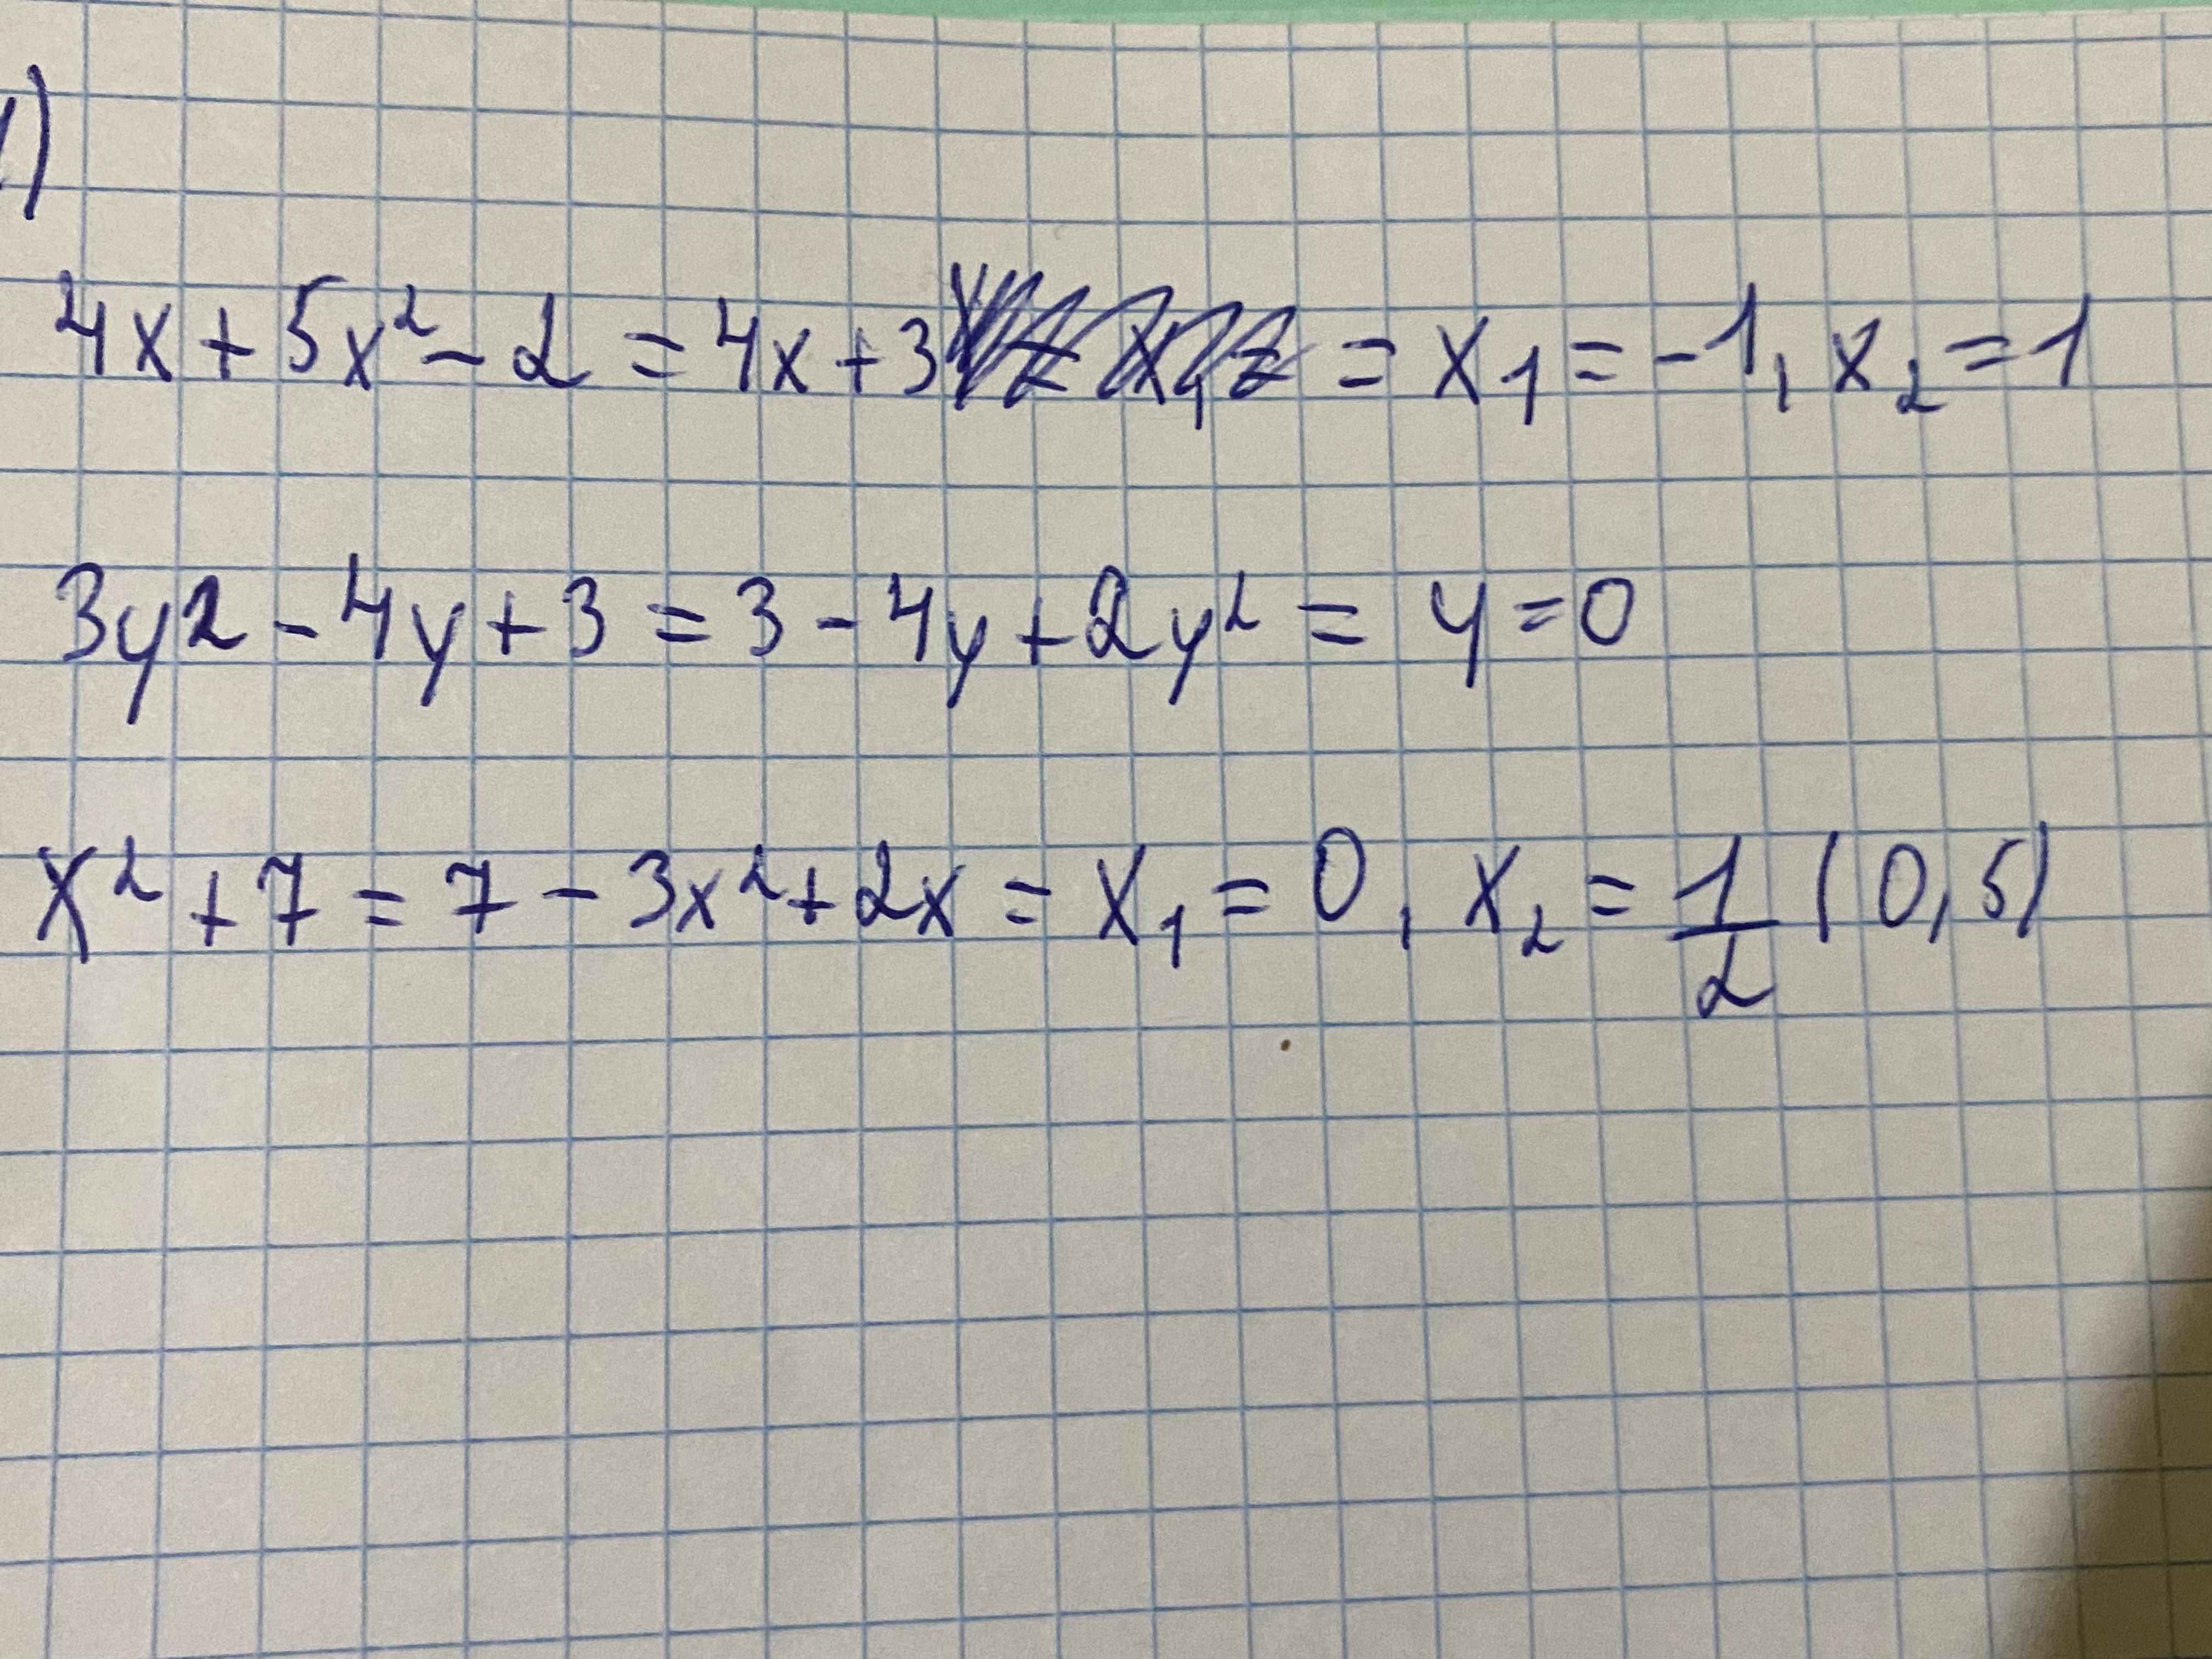 1)
4x + 5x² - 2 = 4x + 3 = x₁ = -1, x₂ = 1
3y2 - 4y + 3 = 3 - 4y + 2y² = y = 0
x² + 7 = 7 - 3x² + 2x = x₁ = 0, x₂ = 1/2 (0,5)